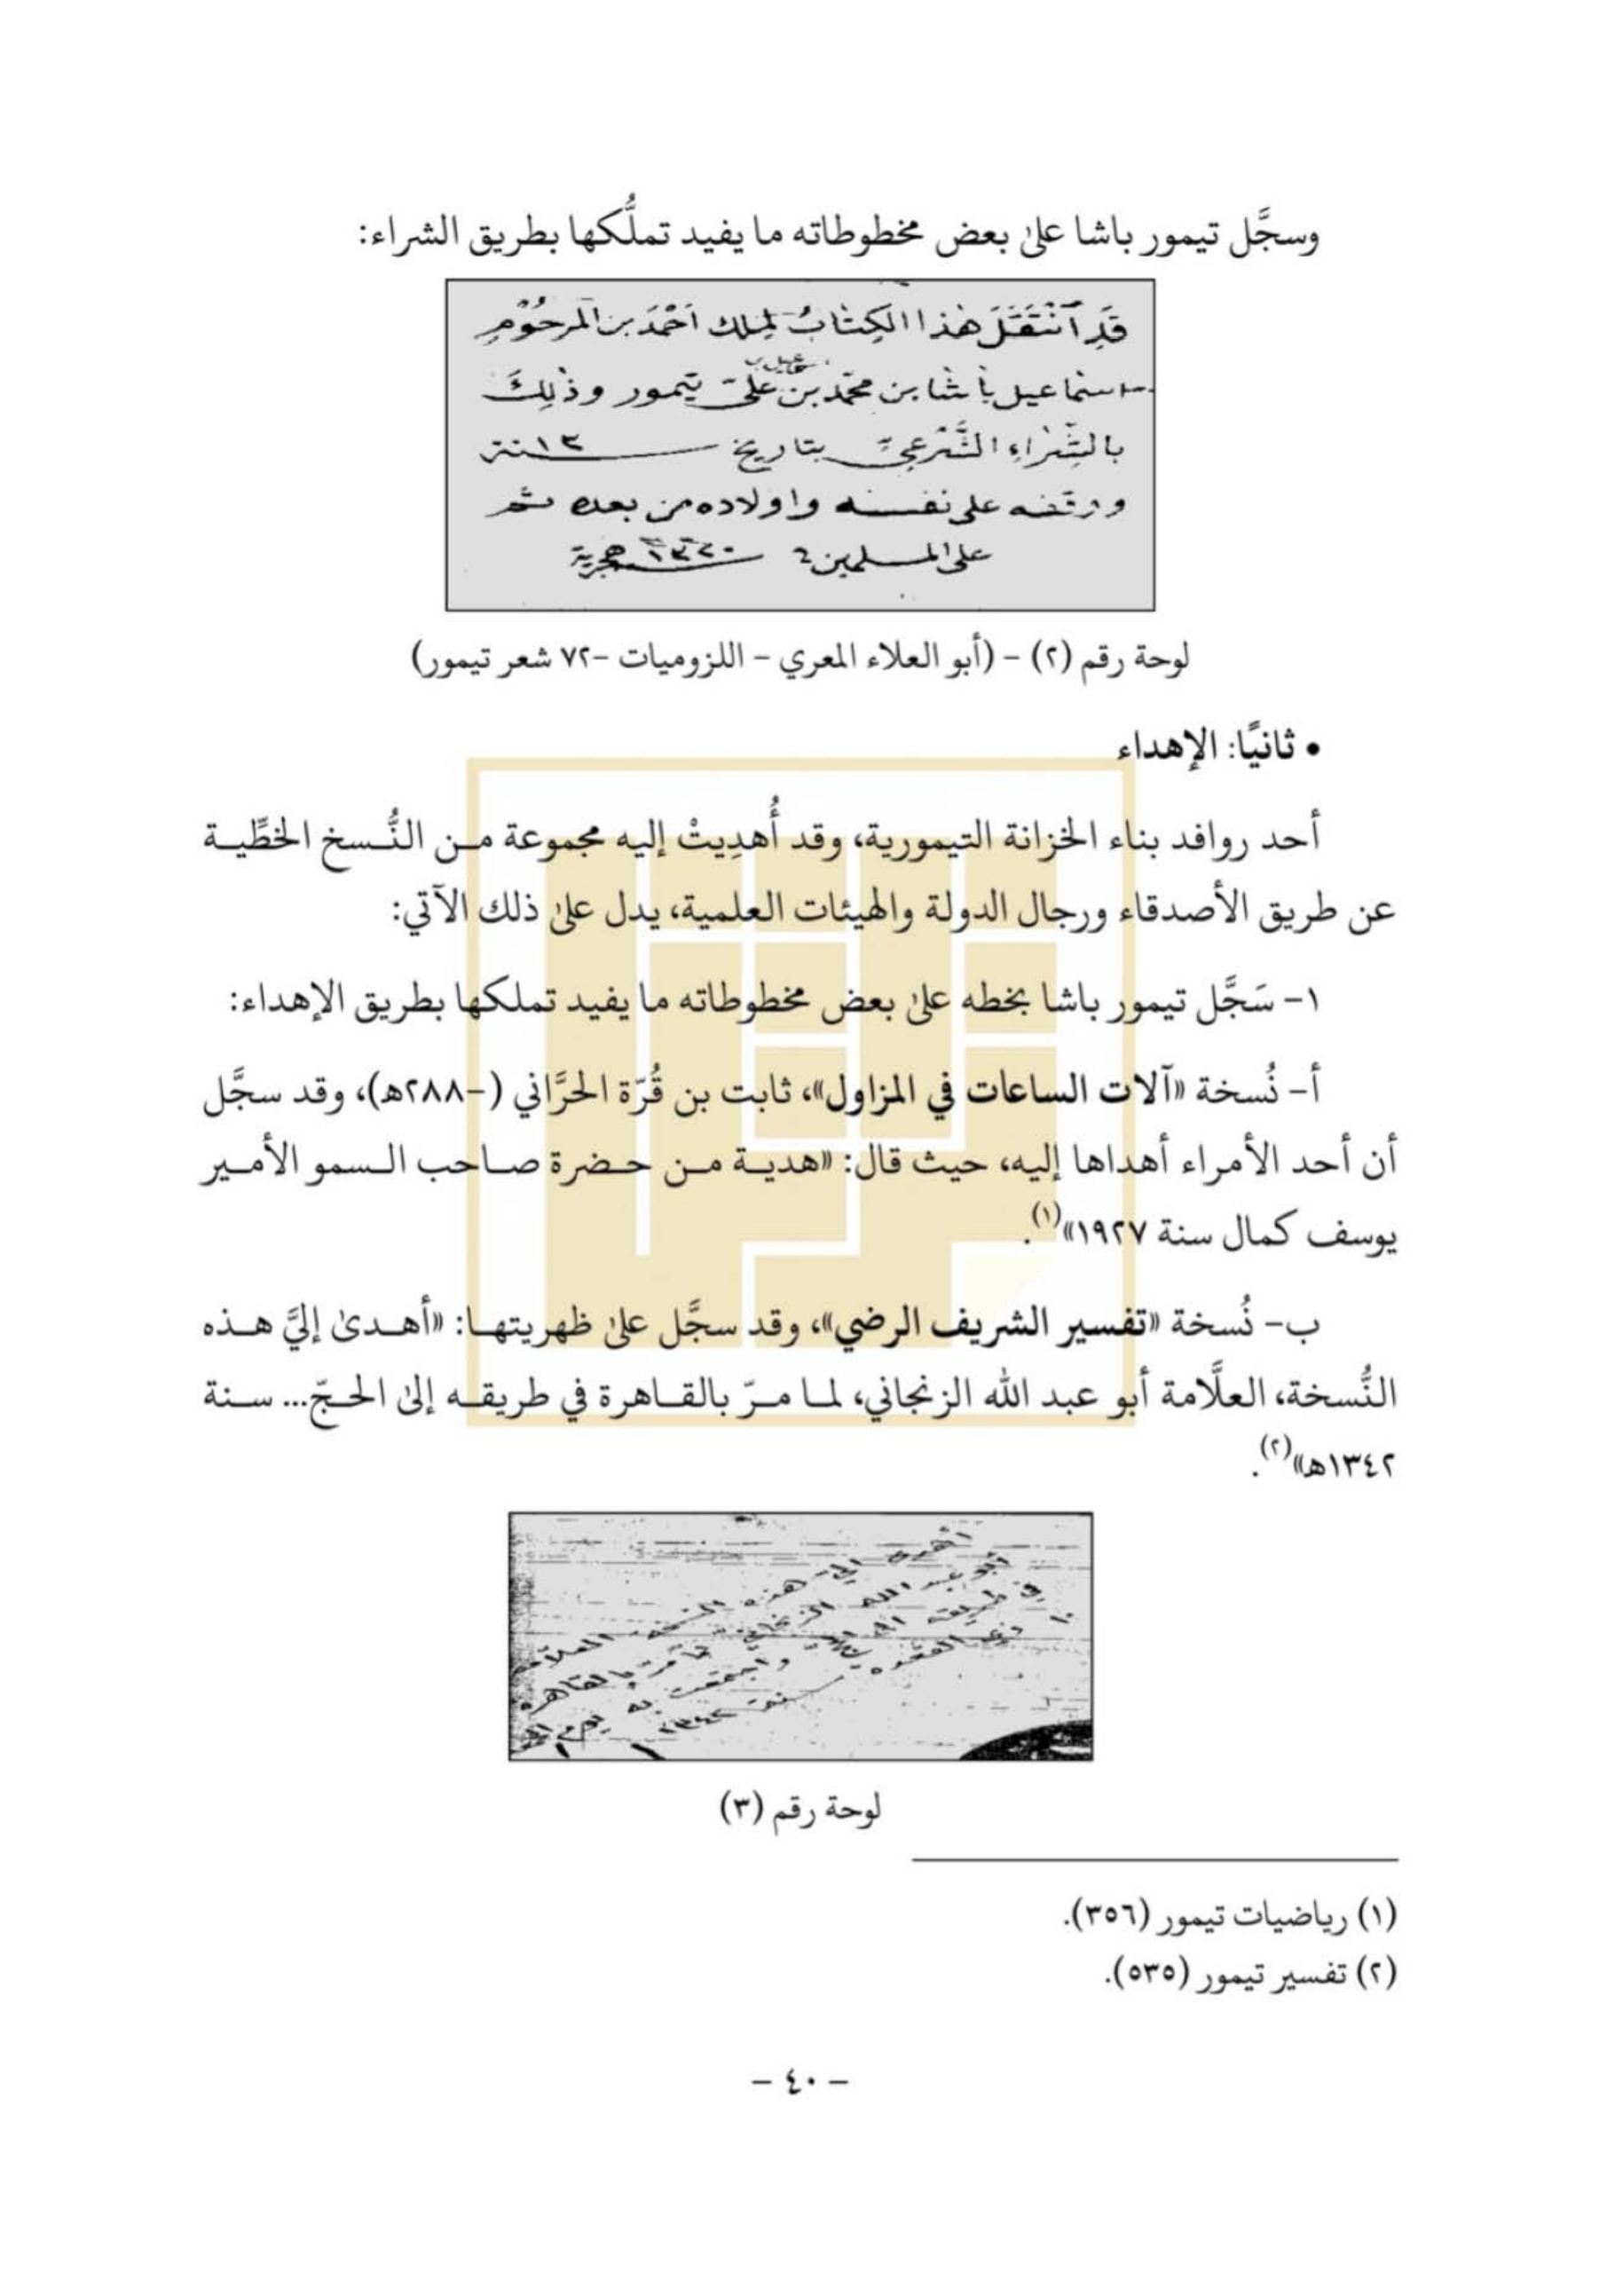 وسجَّل تيمور باشا علىٰ بعض مخطوطاته ما يفيد تملُّكها بطريق الشراء:
قَدِ ٱنْتَقَلَ هٰذا الكِتابُ لِمِلك اَحْمَدَ بن المرحُوْم
اسماعيل باشا بن محمّد بن علىّ تيمور وذٰلِكَ
بالشِّراءِ الشَّرعىّ بتاريخ ١٣ سنة
ووقفه على نفسه واولاده من بعده ثم
على المسلمين ١٣٢٠ هجرية
لوحة رقم (٢) – (أبو العلاء المعري – اللزوميات –٧٢ شعر تيمور)
• ثانيًا: الإهداء
أحد روافد بناء الخزانة التيمورية، وقد أُهدِيتْ إليه مجموعة من النُّسخ الخطِّية
عن طريق الأصدقاء ورجال الدولة والهيئات العلمية، يدل علىٰ ذلك الآتي:
١– سَجَّل تيمور باشا بخطه علىٰ بعض مخطوطاته ما يفيد تملكها بطريق الإهداء:
أ– نُسخة «آلات الساعات في المزاول»، ثابت بن قُرّة الحرَّاني (–٢٨٨هـ)، وقد سجَّل
أن أحد الأمراء أهداها إليه، حيث قال: «هدية من حضرة صاحب السمو الأمير
يوسف كمال سنة ١٩٢٧»(١).
ب– نُسخة «تفسير الشريف الرضي»، وقد سجَّل علىٰ ظهريتها: «أهدىٰ إليَّ هذه
النُّسخة، العلَّامة أبو عبد الله الزنجاني، لما مرّ بالقاهرة في طريقه إلىٰ الحجّ... سنة
١٣٤٢هـ»(٢).
أهدى إلىّ هذه النسخة العلامة
أبو عبد الله الزنجانى لما مرّ بالقاهرة
فى طريقه الى الحج واجتمعت به يوم
١٠ ذى القعدة سنة ١٣٤٢
لوحة رقم (٣)
(١) رياضيات تيمور (٣٥٦).
(٢) تفسير تيمور (٥٣٥).
– ٤٠ –